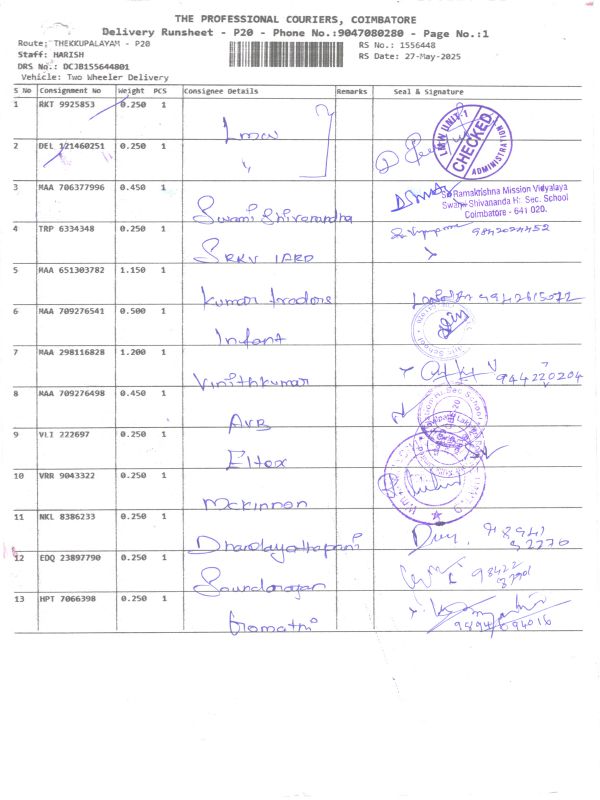 THE PROFESSIONAL COURIERS, COIMBATORE
Delivery Runsheet - P20 - Phone No.:9047080280 - Page No.:1
Route: THEKKUPALAYAM - P20 RS No.: 1556448
Staff: HARISH RS Date: 27-May-2025
DRS No.: DCJB155644801
Vehicle: Two Wheeler Delivery
S No Consignment No Weight PCS Consignee Details Remarks Seal & Signature
1 RKT 9925853 0.250 1
Lmw
LMW UNIT-1 CHECKED ADMINISTRATION
2 DEL 121460251 0.250 1
"
3 MAA 706377996 0.450 1
Swami Shivanandha
Sri Ramakrishna Mission Vidyalaya
Swami Shivananda Hr. Sec. School
Coimbatore - 641 020.
4 TRP 6334348 0.250 1
SRKV IARD
5 MAA 651303782 1.150 1
Kumar tradors
6 MAA 709276541 0.500 1
Infant
7 MAA 298116828 1.200 1
Vinithkumar
9442220204
8 MAA 709276498 0.450 1
AVB
9 VLI 222697 0.250 1
Eltex
10 VRR 9043322 0.250 1
Mckinnon
11 NKL 8386233 0.250 1
12 EDQ 23897790 0.250 1
Soundarajan
13 HPT 7066398 0.250 1
Gomathi